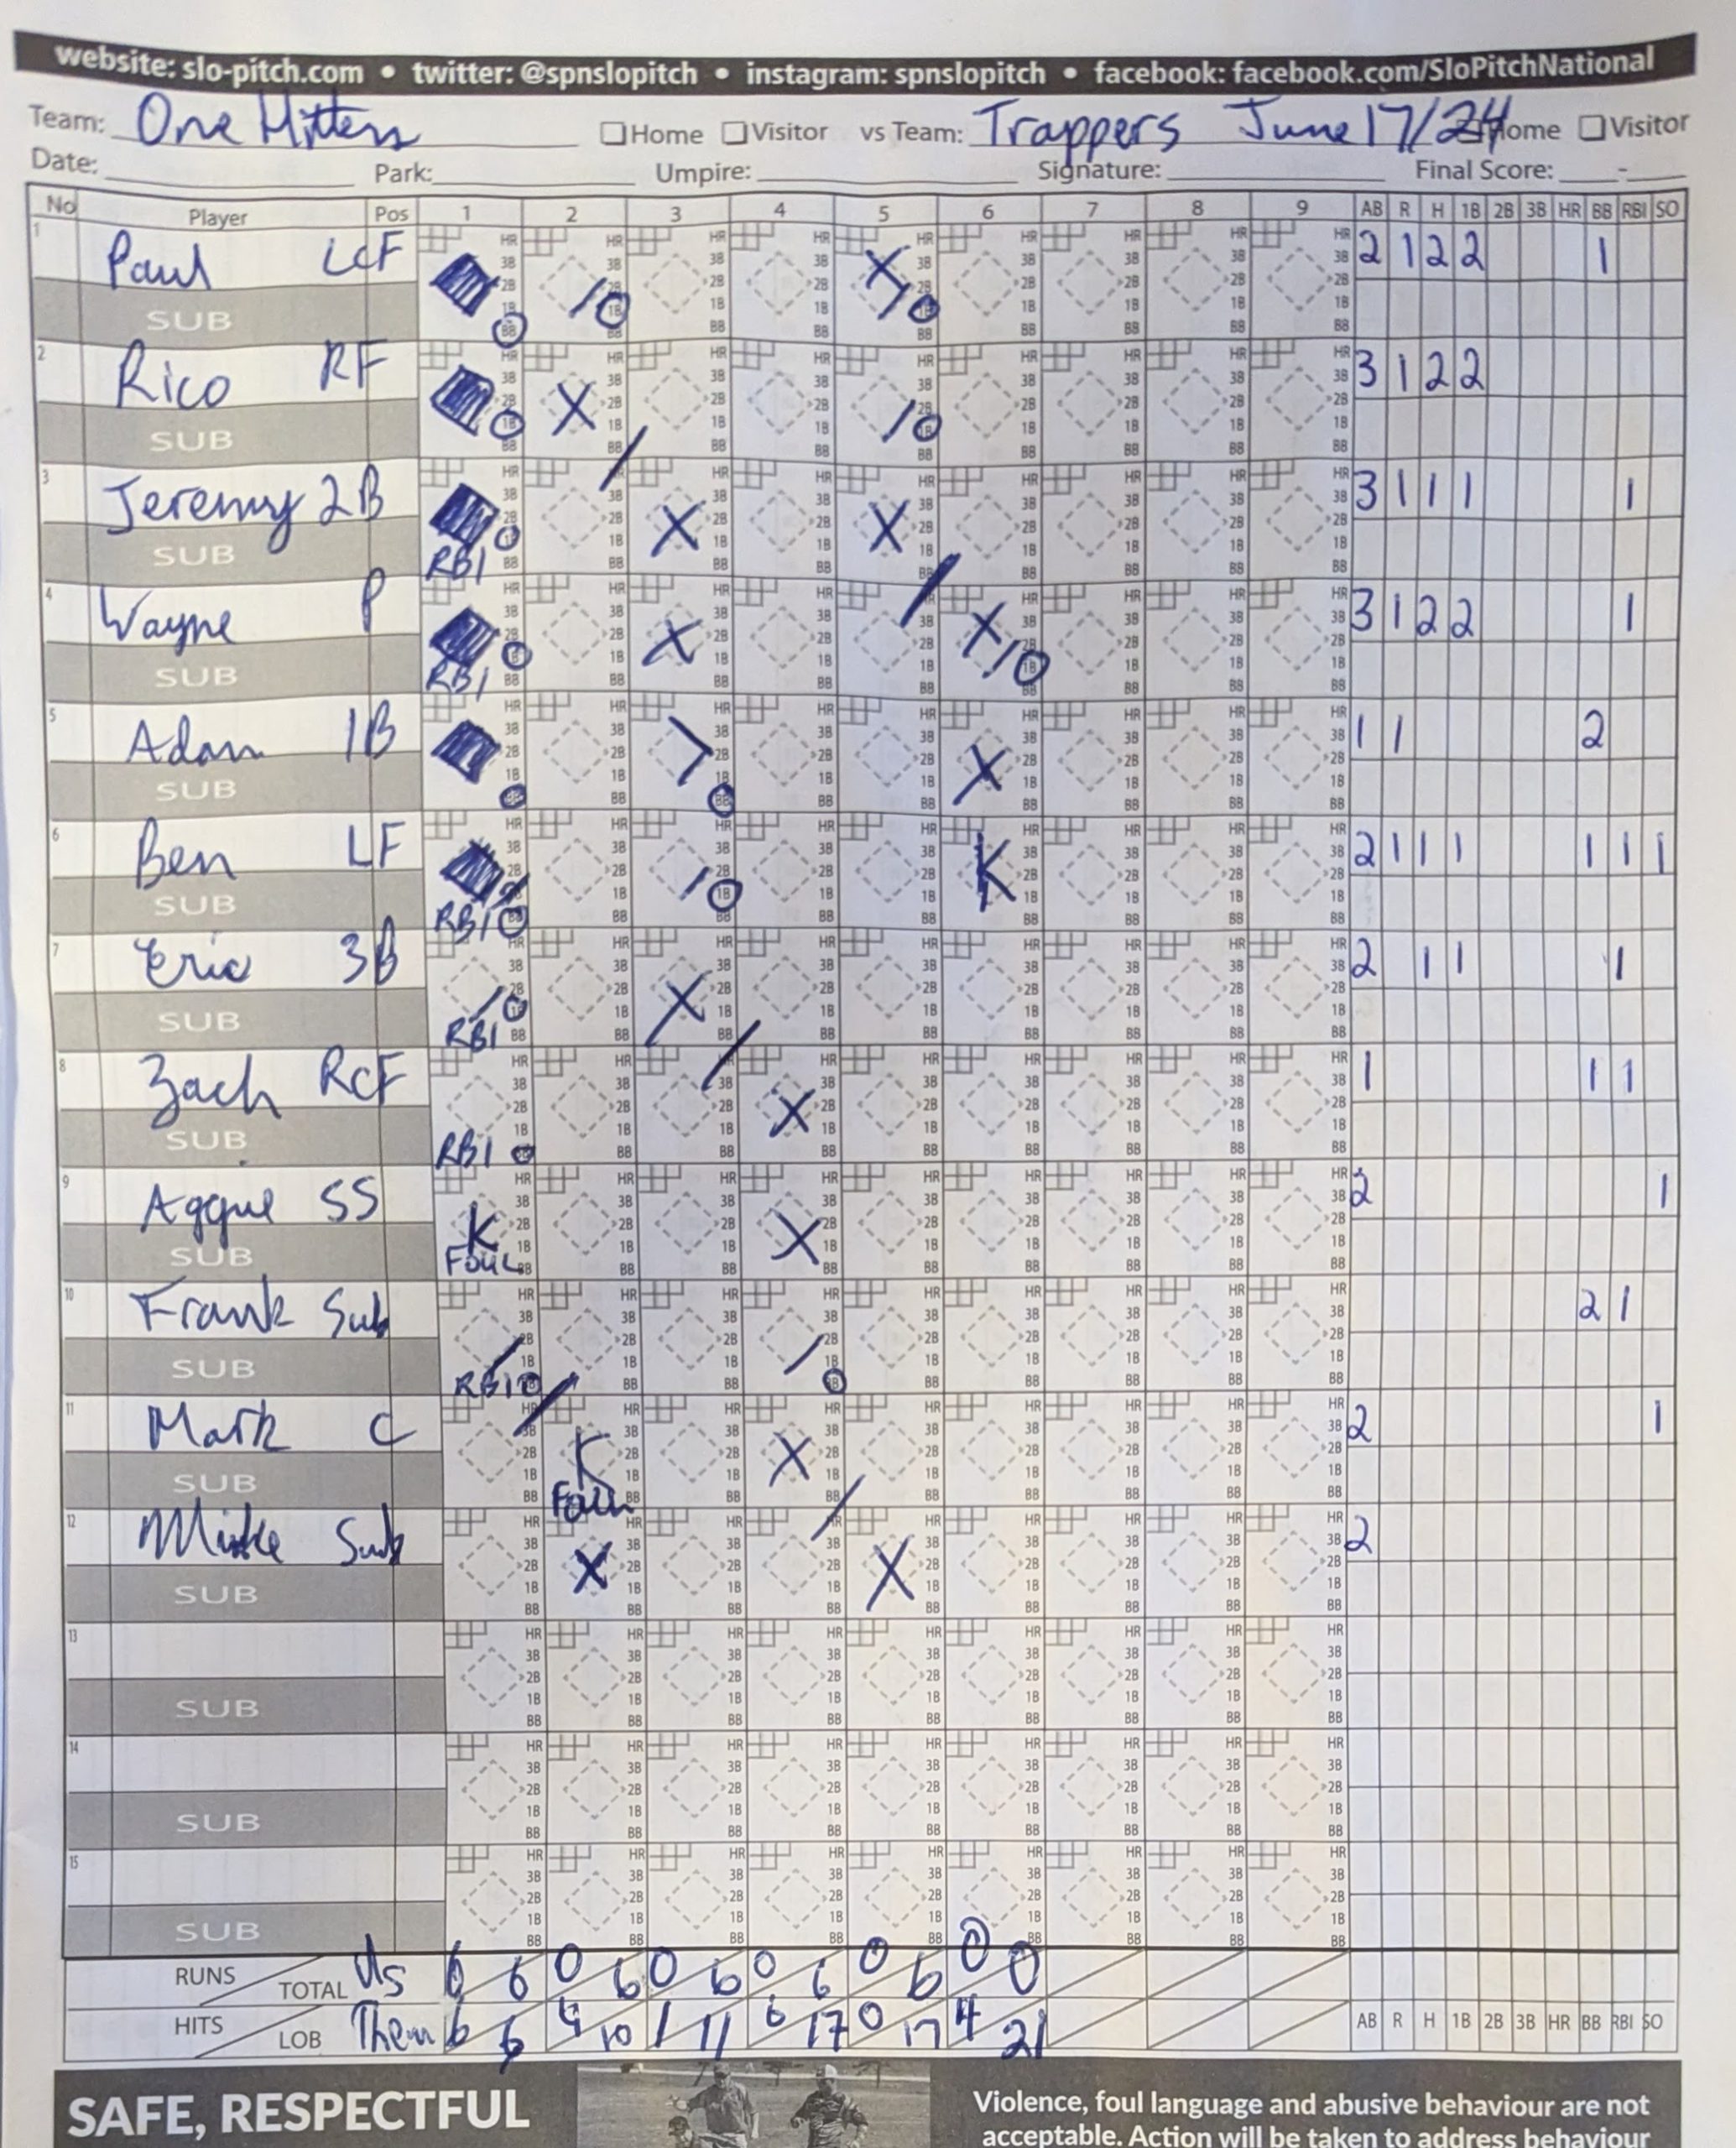 website: slo-pitch.com • twitter: @spnslopitch • instagram: spnslopitch • facebook: facebook.com/SloPitchNational
Team: One Hitters Home Visitor vs Team: Trappers June 17/24 Home Visitor
Date: Park: Umpire: Signature: Final Score: -
No Player Pos 1 2 3 4 5 6 7 8 9 AB R H 1B 2B 3B HR BB RBI SO
1 Paul LCF 10 X 10 2 1 2 2 1
SUB
2 Rico RF X 10 3 1 2 2
SUB
3 Jeremy 2B RBI X X 3 1 1 1 1
SUB
4 Wayne P RBI X X 10 3 1 2 2 1
SUB
5 Adam 1B X 1 1 2
SUB
6 Ben LF RBI 10 K 2 1 1 1 1 1 1
SUB
7 Eric 3B RBI X 2 1 1 1
SUB
8 Zach RCF RBI X 1 1 1
SUB
9 Aggue SS K Foul X 2 1
SUB
10 Frank Sub RBI 2 1
SUB
11 Mark C K Foul X 2 1
SUB
12 Mike Sub X X 2
SUB
13
SUB
14
SUB
15
SUB
RUNS TOTAL Us 6 6 0 6 0 6 0 6 0 6 0 0
HITS LOB Them 6 6 4 10 1 11 6 17 0 17 4 21 AB R H 1B 2B 3B HR BB RBI SO
SAFE, RESPECTFUL
Violence, foul language and abusive behaviour are not
acceptable. Action will be taken to address behaviour